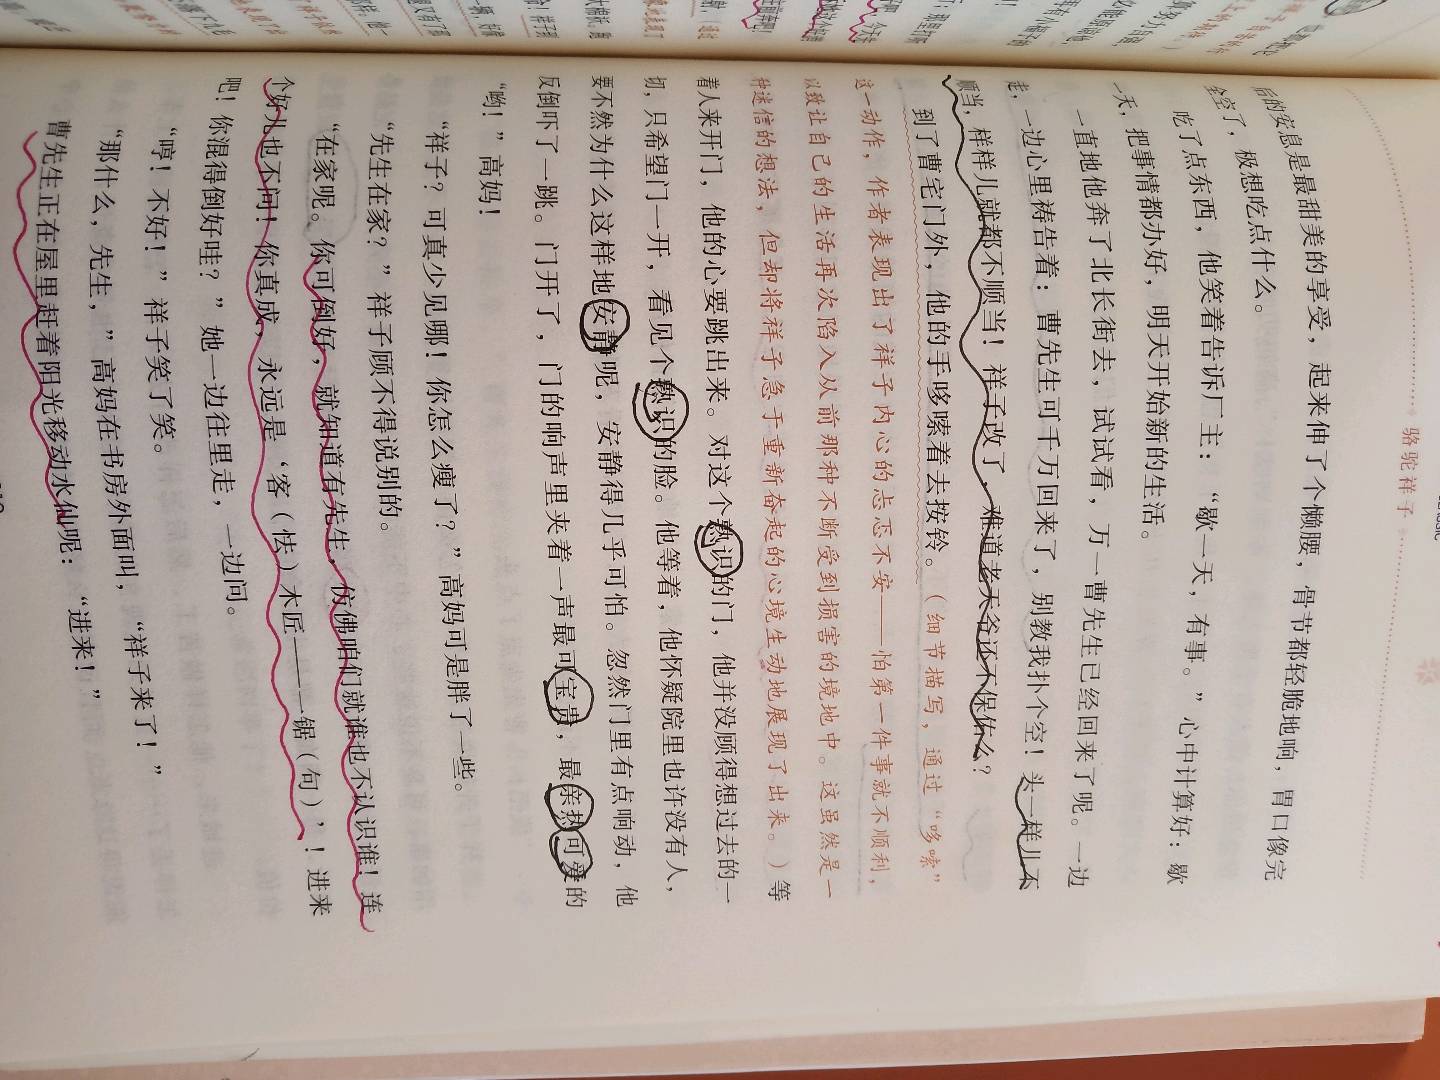 骆驼祥子
后的安息是最甜美的享受，起来伸了个懒腰，骨节都轻脆地响，胃口像完
全空了，极想吃点什么。
吃了点东西，他笑着告诉厂主：“歇一天，有事。”心中计算好：歇
一天，把事情都办好，明天开始新的生活。
一直地他奔了北长街去，试试看，万一曹先生已经回来了呢。一边
走，一边心里祷告着：曹先生可千万回来了，别教我扑个空！头一样儿不
顺当，样样儿就都不顺当！祥子改了，难道老天爷还不保佑么？
到了曹宅门外，他的手哆嗦着去按铃。（细节描写，通过“哆嗦”
这一动作，作者表现出了祥子内心的忐忑不安——怕第一件事就不顺利，
以致让自己的生活再次陷入从前那种不断受到损害的境地中。这虽然是一
种迷信的想法，但却将祥子急于重新奋起的心境生动地展现了出来。）等
着人来开门，他的心要跳出来。对这个熟识的门，他并没顾得想过去的一
切，只希望门一开，看见个熟识的脸。他等着，他怀疑院里也许没有人，
要不然为什么这样地安静呢，安静得几乎可怕。忽然门里有点响动，他
反倒吓了一跳。门开了，门的响声里夹着一声最可宝贵，最亲热可爱的
“哟！”高妈！
“祥子？可真少见哪！你怎么瘦了？”高妈可是胖了一些。
“先生在家？”祥子顾不得说别的。
“在家呢。你可倒好，就知道有先生，仿佛咱们就谁也不认识谁！连
个好儿也不问！你真成，永远是‘客（怯）木匠——一锯（句）’！进来
吧！你混得倒好哇？”她一边往里走，一边问。
“哼！不好！”祥子笑了笑。
“那什么，先生，”高妈在书房外面叫，“祥子来了！”
曹先生正在屋里赶着阳光移动水仙呢：“进来！”